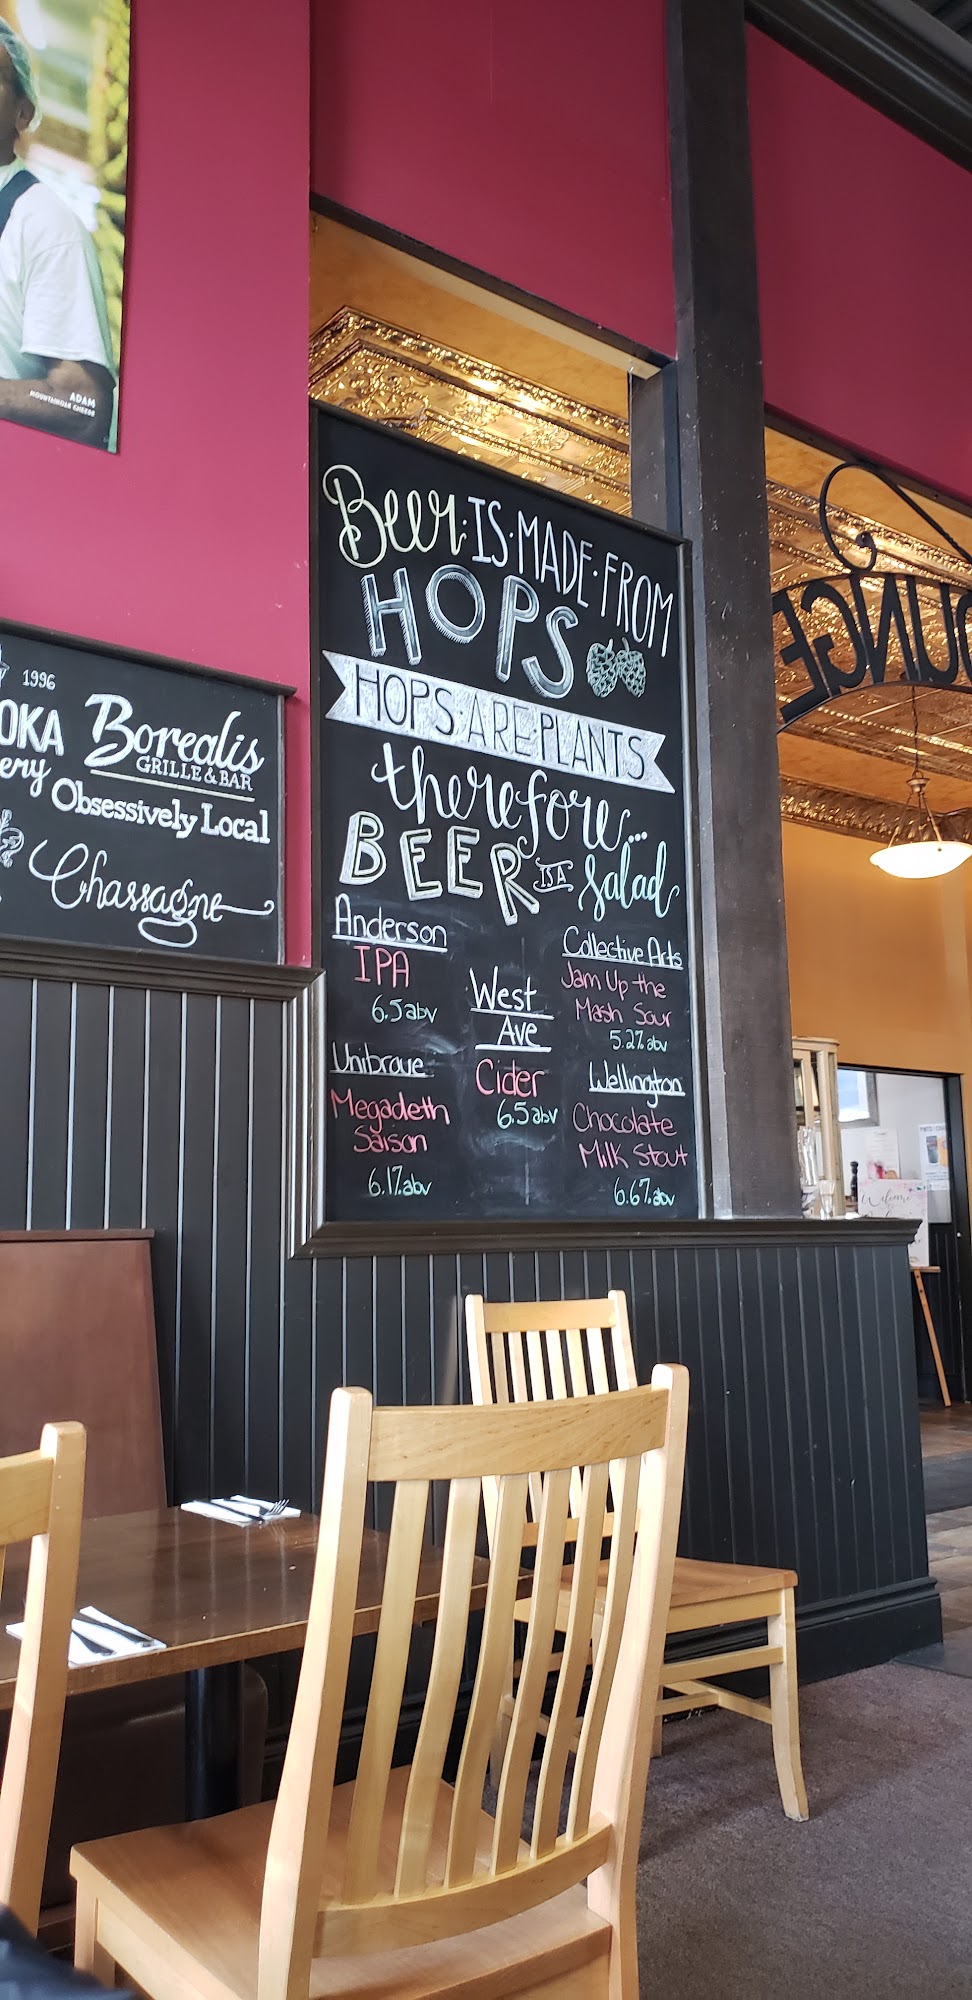 ADAM
MOUNTAINOAK CHEESE
Beer·IS·MADE·FROM
HOPS
HOPS·ARE·PLANTS
therefore...
BEER IS A salad
Anderson
IPA
6.5abv
Unibroue
Megadeth
Saison
6.1%abv
West
Ave
Cider
6.5abv
Collective Arts
Jam Up the
Mash Sour
5.2%abv
Wellington
Chocolate
Milk Stout
6.6%abv
1996
OKA
ery
Borealis
GRILLE & BAR
Obsessively Local
Chassagne
OUNGE
Welcome